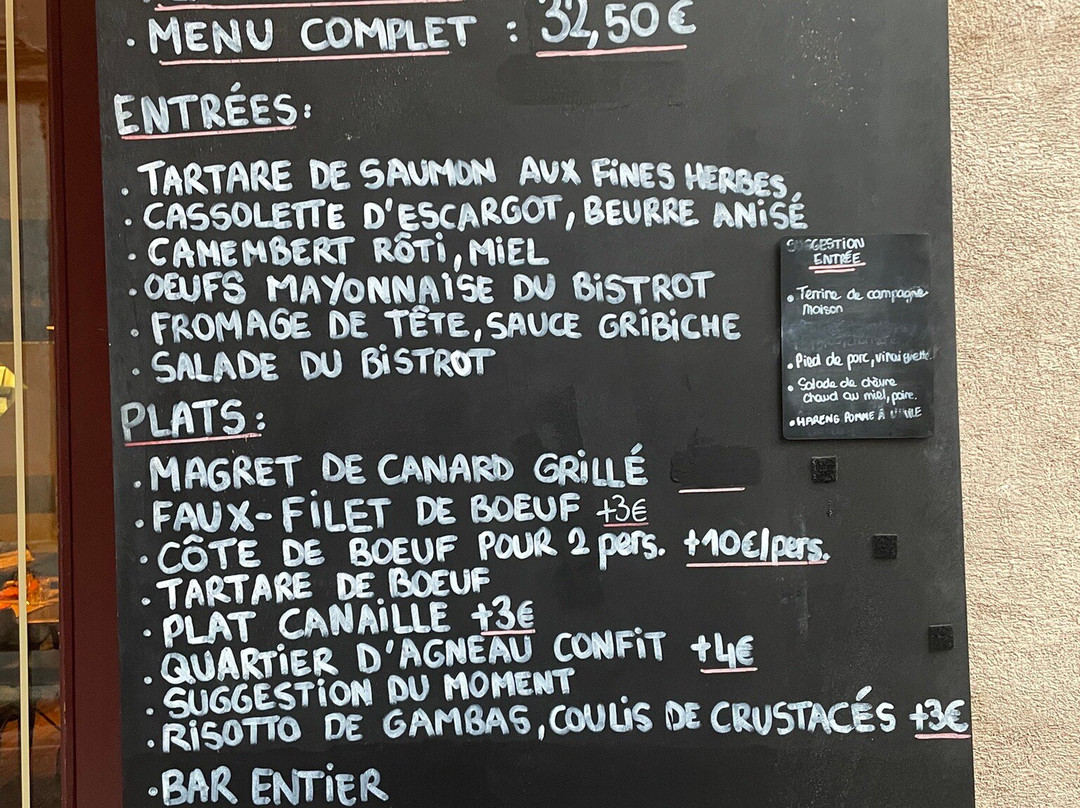 · MENU COMPLET : 32,50 €
ENTRÉES:
· TARTARE DE SAUMON AUX FINES HERBES
· CASSOLETTE D'ESCARGOT, BEURRE ANISÉ
· CAMEMBERT RÔTI, MIEL
· OEUFS MAYONNAISE DU BISTROT
· FROMAGE DE TÊTE, SAUCE GRIBICHE
· SALADE DU BISTROT
SUGGESTION
ENTRÉE
• Terrine de campagne
maison
• Pied de porc, vinaigrette
• Salade de chèvre
chaud au miel, poire.
• HARENG POMME À L'HUILE
PLATS:
· MAGRET DE CANARD GRILLÉ
· FAUX-FILET DE BOEUF +3€
· CÔTE DE BOEUF POUR 2 pers. +10€/pers.
· TARTARE DE BOEUF
· PLAT CANAILLE +3€
· QUARTIER D'AGNEAU CONFIT +4€
· SUGGESTION DU MOMENT
· RISOTTO DE GAMBAS, COULIS DE CRUSTACÉS +3€
· BAR ENTIER